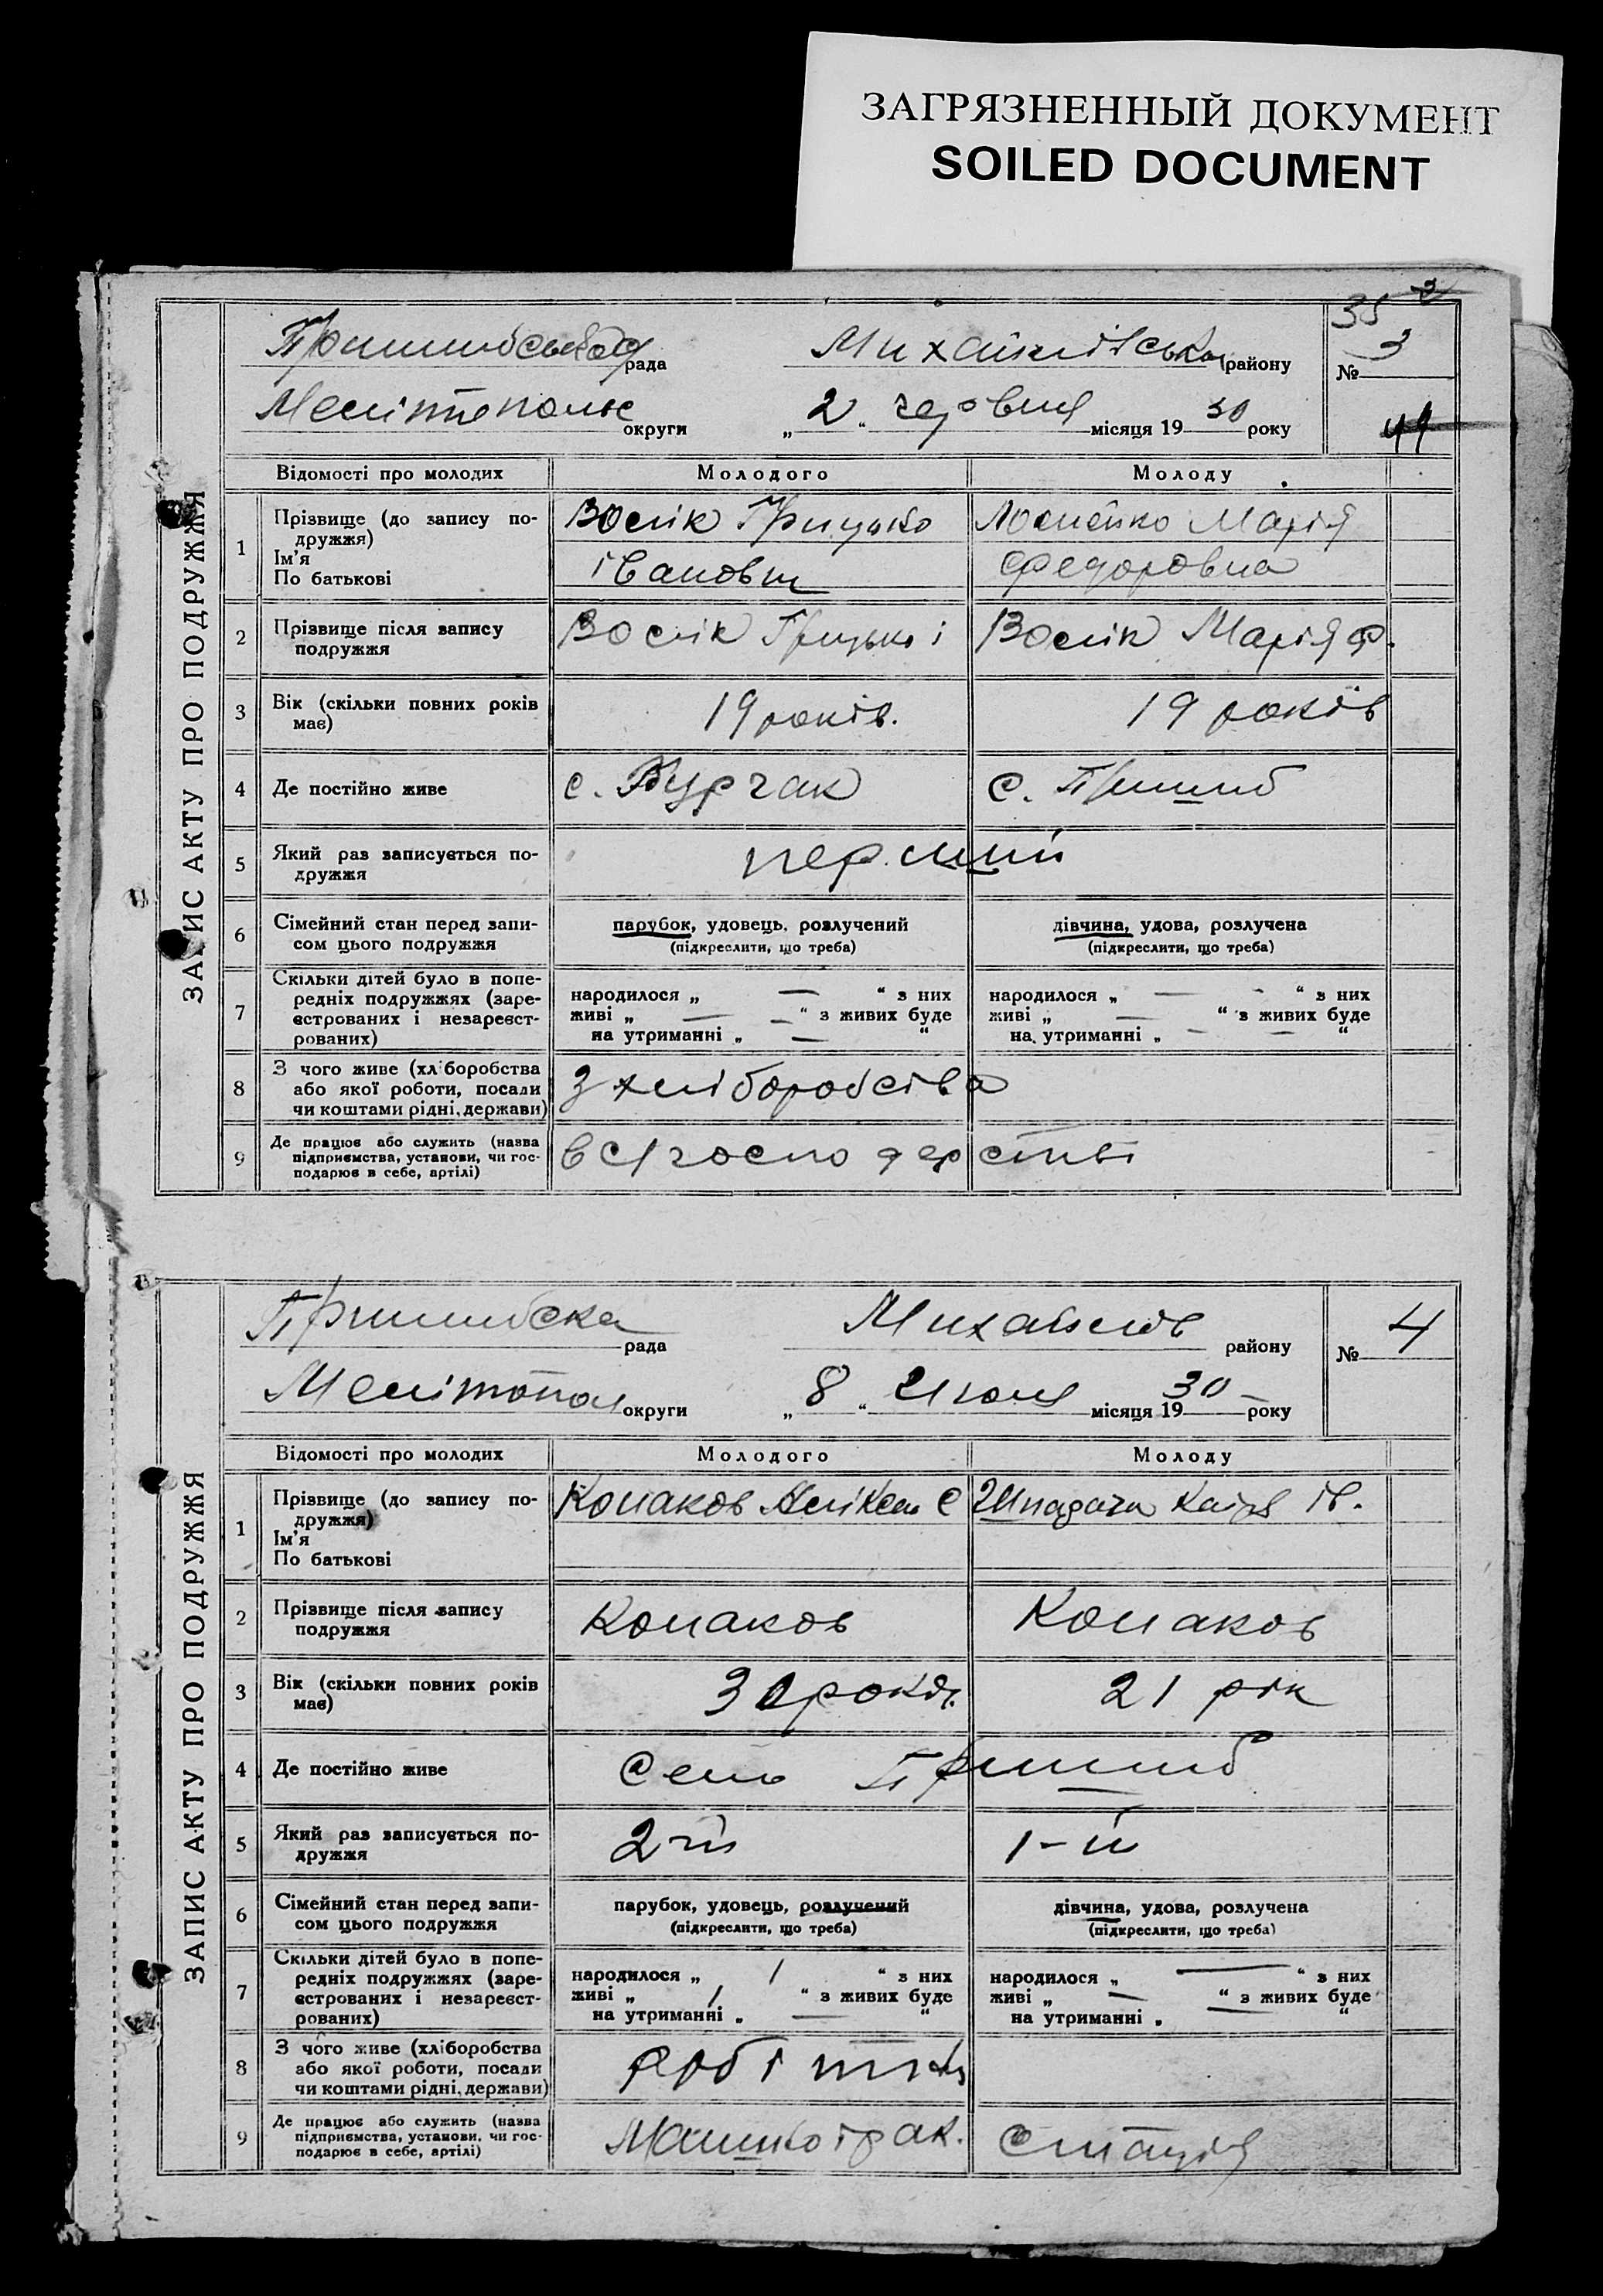 ЗАГРЯЗНЕННЫЙ ДОКУМЕНТ
SOILED DOCUMENT
35
ЗАПИС АКТУ ПРО ПОДРУЖЖЯ
рада Михайлівська району № 3
Мелітопольс округи „ 2 “ червня місяця 19 30 року
Відомості про молодих Молодого Молоду
1 Прізвище (до запису по-
дружжя)
Ім'я
По батькові
Волік Грицько
Івонович
Марія
Федоровна
2 Прізвище після запису
подружжя
Волік Грицько і Волік Марія Ф.
3 Вік (скільки повних років
має)
19 років. 19 років
4 Де постійно живе с. Бурчак с. Пришиб
5 Який раз записується по-
дружжя
перший
6 Сімейний стан перед запи-
сом цього подружжя
парубок, удовець, розлучений
(підкреслити, що треба)
дівчина, удова, розлучена
(підкреслити, що треба)
7 Скільки дітей було в попе-
редніх подружжях (заре-
єстрованих і незареєст-
рованих)
народилося „ — “ з них
живі „ — “ з живих буде
на утриманні „ — “
народилося „ — “ з них
живі „ — “ з живих буде
на утриманні „ — “
8 З чого живе (хліборобства
або якої роботи, посади
чи коштами рідні, держави)
З хліборобства
9 Де працює або служить (назва
підприємства, установи, чи гос-
подарює в себе, артілі)
в с/господарстві
ЗАПИС АКТУ ПРО ПОДРУЖЖЯ
Пришибска рада Михайлов району № 4
Мелітопол округи „ 8 “ Июня місяця 19 30 — року
Відомості про молодих Молодого Молоду
1 Прізвище (до запису по-
дружжя)
Ім'я
По батькові
Конаков С Ів.
2 Прізвище після запису
подружжя
Конаков Конаков
3 Вік (скільки повних років
має)
років. 21 рік
4 Де постійно живе Село Пришиб
5 Який раз записується по-
дружжя
2-ий 1-й
6 Сімейний стан перед запи-
сом цього подружжя
парубок, удовець, розлучений
(підкреслити, що треба)
дівчина, удова, розлучена
(підкреслити, що треба)
7 Скільки дітей було в попе-
редніх подружжях (заре-
єстрованих і незареєст-
рованих)
народилося „ 1 “ з них
живі „ 1 “ з живих буде
на утриманні „ — “
народилося „ — “ з них
живі „ — “ з живих буде
на утриманні „
8 З чого живе (хліборобства
або якої роботи, посади
чи коштами рідні, держави)
робітник
9 Де працює або служить (назва
підприємства, установи, чи гос-
подарює в себе, артілі)
Машинотрак. Станція